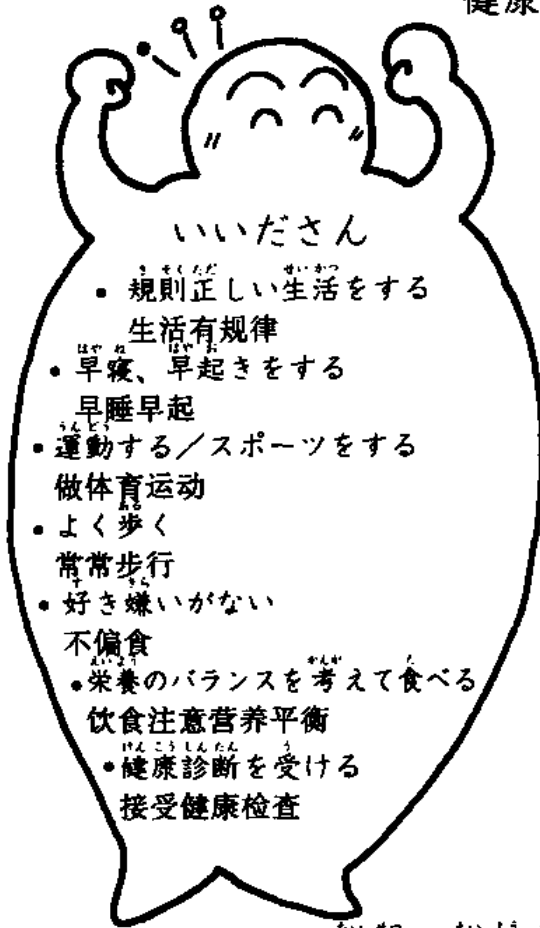 健康
いいださん
• 規則正しい生活をする
生活有规律
• 早寝、早起きをする
早睡早起
• 運動する／スポーツをする
做体育运动
• よく歩く
常常步行
• 好き嫌いがない
不偏食
• 栄養のバランスを考えて食べる
饮食注意营养平衡
• 健康診断を受ける
接受健康检查